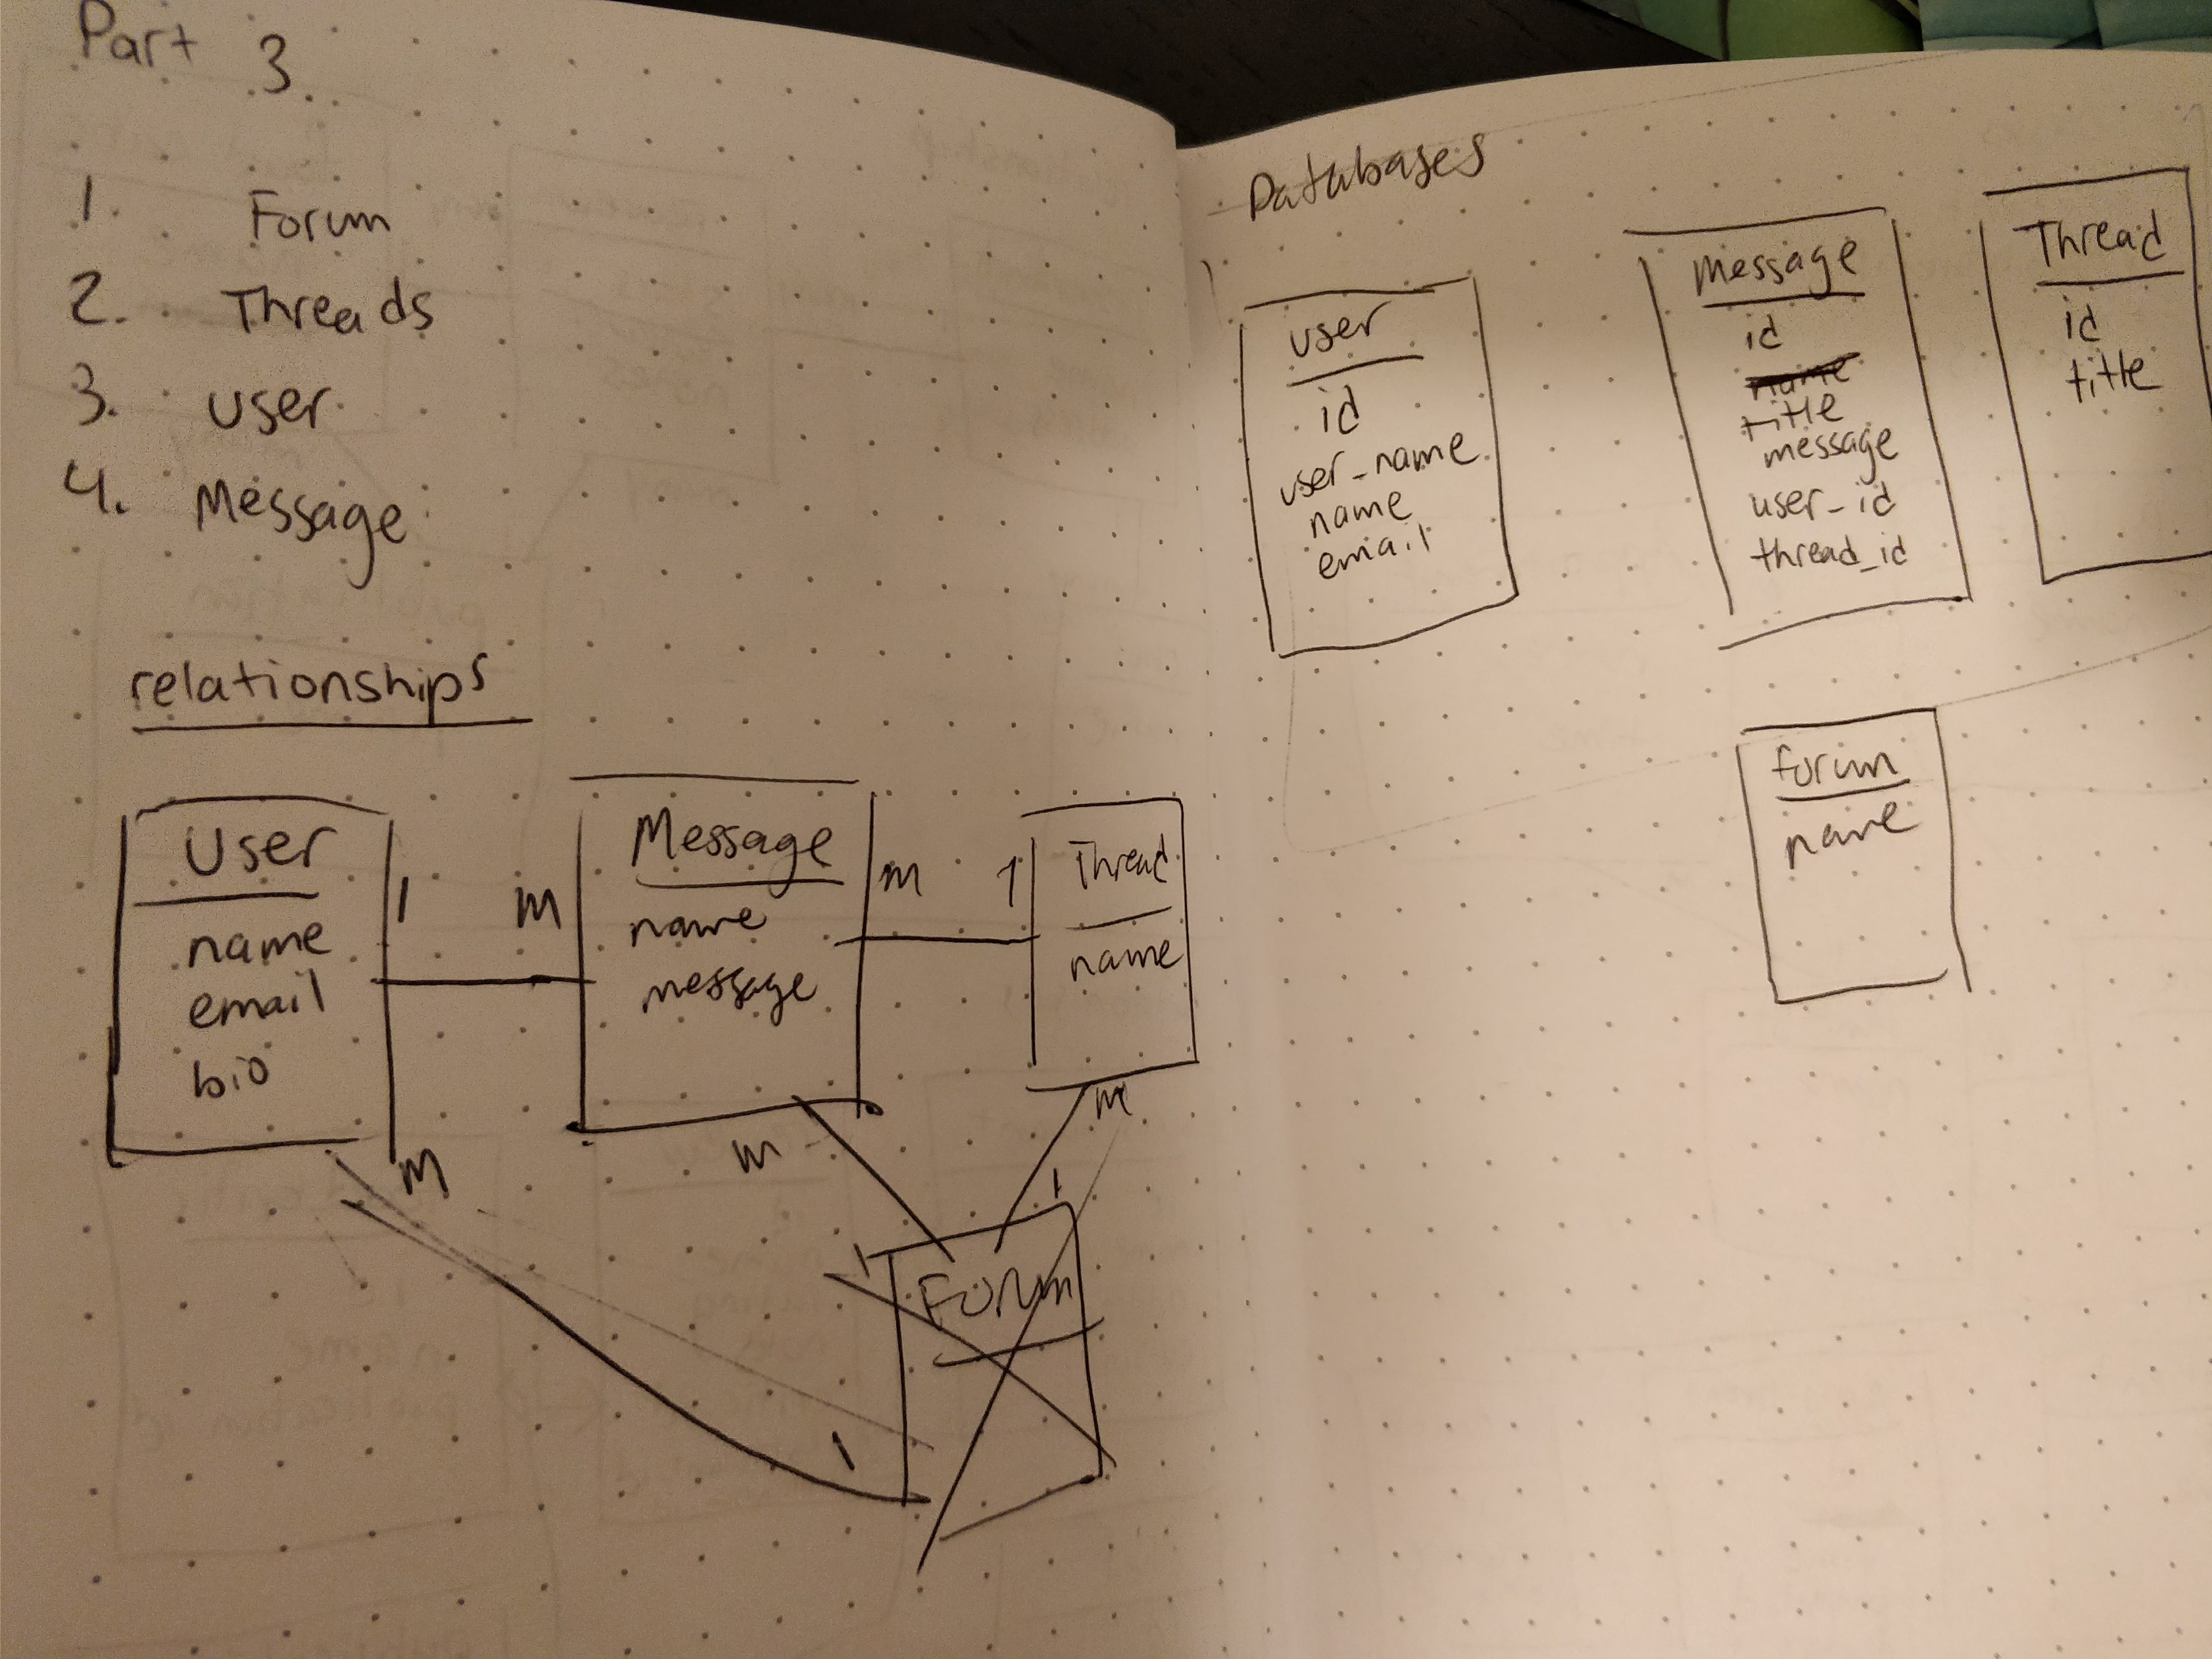 Part 3
1. Forum
2. Threads
3. user
4. Message
relationships
User
name
email
bio
1
m
Message
name
message
m
1
Thread
name
m
m
m
1
1
Forum
1
Databases
user
id
user_name
name
email
Message
id
name
title
message
user_id
thread_id
Thread
id
title
forum
name